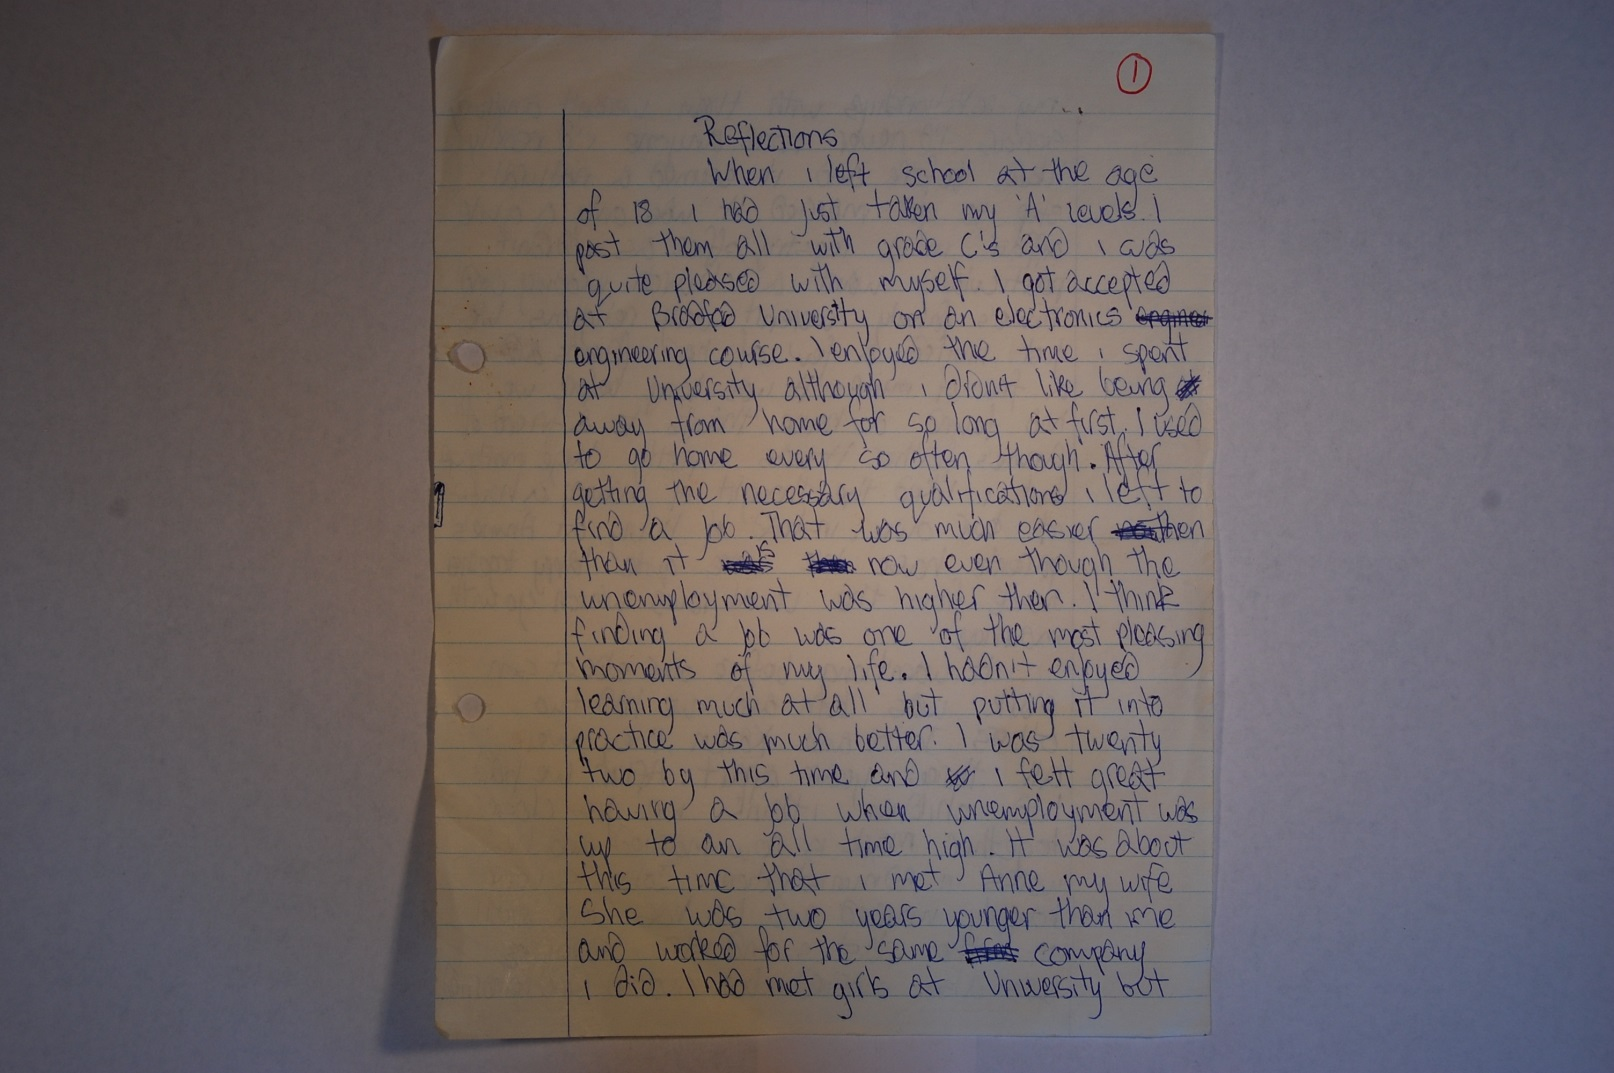 1
Reflections
When i left school at the age
of 18 i had just taken my 'A' levels. I
past them all with grade C's and i was
quite pleased with myself. I got accepted
at Bradfod University on an electronics
engineering course. I enjoyed the time i spent
at University although i didnt like being
away from home for so long at first. I used
to go home every so often though. After
getting the necessary qualifications i left to
find a job. That was much easier then
than it is now even though the
unemployment was higher then. I think
finding a job was one of the most pleasing
moments of my life. I hadn't enjoyed
learning much at all but putting it into
practice was much better. I was twenty
two by this time and i felt great
having a job when unemployment was
up to an all time high. It was about
this time that i met Anne my wife
She was two years younger than me
and worked for the same company
i did. I had met girls at University but